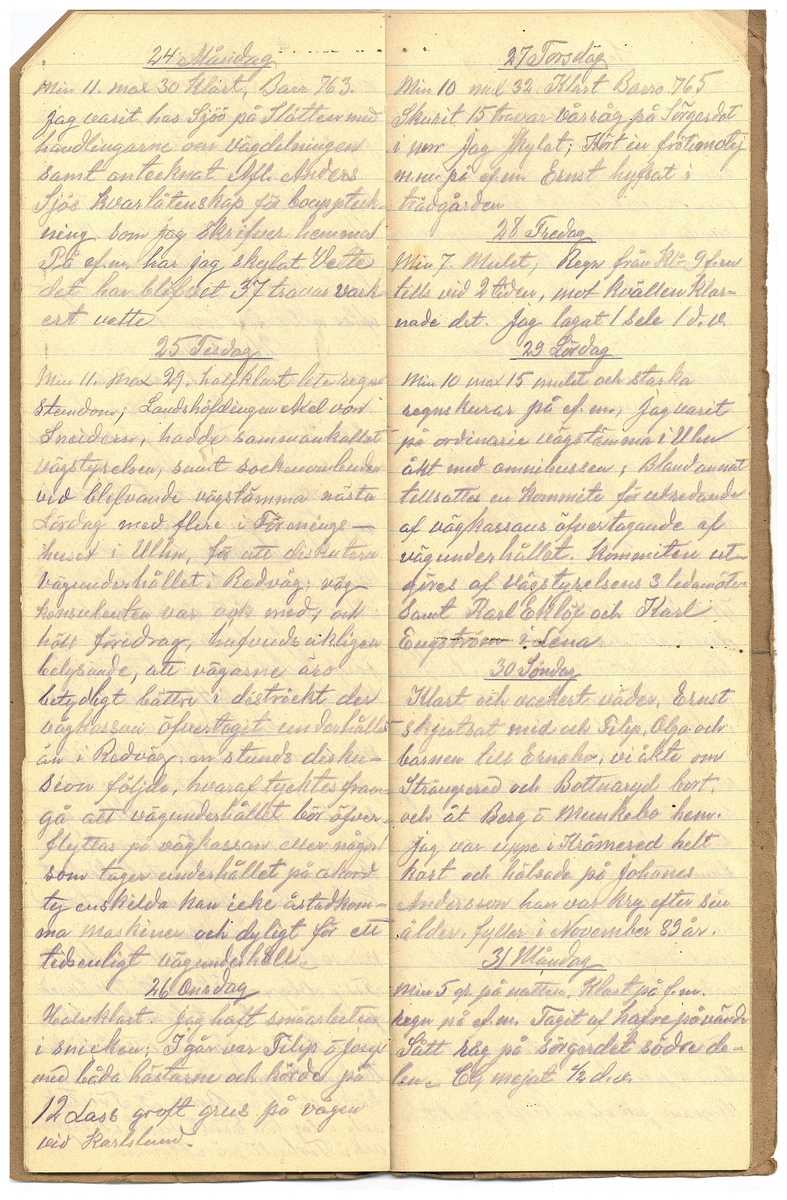 24 Måndag
Min 11. max 30 Klart, Barr 763.
jag varit hos Sjöö på Slätten med
handlingarne om vägdelningen
samt antecknat Afl. Anders
Sjös kvarlåtenskap för bouppteck-
ning som jag skrifver hemma
På ef.m. har jag skylat Vette
det har blifvit 37 travar vack-
ert vette
25 Tisdag
Min 11. max 29. halfklart lite regn
stundom; Landshöfdingen Axel von
Sneidern, hadde sammankallat
vägstyrelsen, samt sockenombuden
vid blifvande vägstämma nästa
Lördag med flere i Förenings-
huset i Ulhn, för att diskutera
vägunderhållet i Redväg; väg-
konsulenten var ock med, och
höll föredrag, hufvudsakligen
belysande, att vägarne äro
betydligt bättre i districkt der
vägkassan öfvertagit underhållet
än i Redväg, en stunds disku-
sion följde, hvaraf tycktes fram-
gå att vägunderhållet bör öfver-
flyttas på vägkassan eller någon
som tager underhållet på akord
ty enskilda kan icke åstadkom-
ma maskiner och dyligt för ett
tidsenligt vägunderhåll.
26 Onsdag
Halfklart. jag haft småarbeten
i snickeri; I går var Filip
med båda hästarne och körde på
12 Lass groft grus på vägen
vid Karlslund.
27 Torsdag
Min 10 max 32 Klart Barro. 765
Skurit 15 travar vårråg på Sörgerdet
i mor jag skylat; Kört in
m.m. på ef.m. Ernst hyfsat i
trädgården
28 Fredag
Min 7. Mulet, Regn från Kl. 9 f.m
tills vid 2 tiden, mot kvällen klar-
nade det. Jag lagat 1 sele 1 d.v.
29 Lördag
Min 10 max 15 mulet och starka
regnskurar på ef.m, jag varit
på ordinarie vägstämma i Ulhn
åkt med omnibussen; Bland annat
tillsattes en Kommite för utredande
af vägkassans öfvertagande af
vägunderhållet. Kommiten ut-
göres af Vägstyrelsens 3 ledamöter
samt Karl Eklöf och Karl
Engström i Lena
30 Söndag
Klart och vackert väder, Ernst
skjutsat mid och Filip, Olga och
barnen till Ernebo, vi åkte om
Strängsered och Bottnaryd bort,
och åt Berg o Munkebo hem.
jag var uppe i Krämered helt
kart och hälsade på Johanes
Andersson han var kry efter sin
ålder, fyller i November 89 år.
31 Måndag
Min 5 gr. på natten, Klart på f.m.
regn på ef.m. Tagit af hafre på vänd
Sått råg på Sörgerdet södre de-
len. mejat ½ d.v.